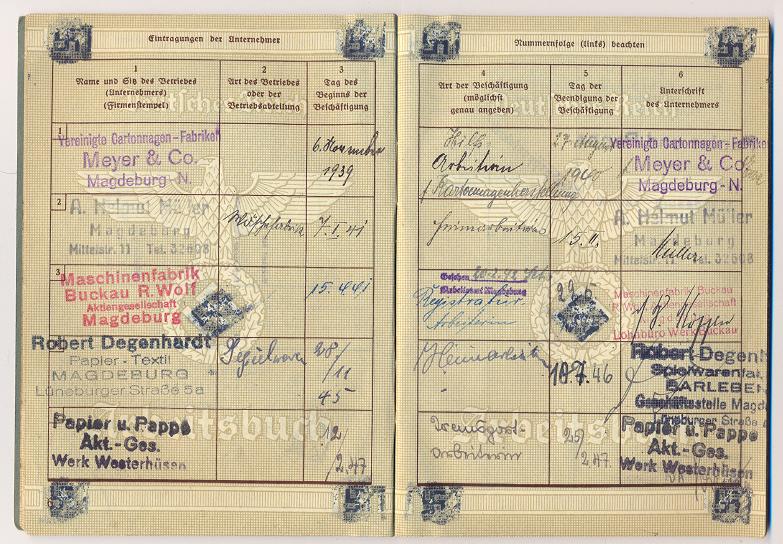 Eintragungen der Unternehmer
1
Name und Sitz des Betriebes
(Unternehmers)
(Firmenstempel)
2
Art des Betriebes
oder der
Betriebsabteilung
3
Tag des
Beginns der
Beschäftigung
1
Vereinigte Cartonnagen-Fabriken
Meyer & Co.
Magdeburg-N.
6. November
1939
2
A. Helmut Müller
Magdeburg
Mittelstr. 11 Tel. 32608
7. I. 41
3
Maschinenfabrik
Buckau R. Wolf
Aktiengesellschaft
Magdeburg
15. 4 41
Robert Degenhardt
Papier - Textil
MAGDEBURG
Lüneburger Straße 5a
28/
11
45
Papier u. Pappe
Akt.-Ges.
Werk Westerhüsen
12/
2.47
Arbeitsbuch
Nummernfolge (links) beachten
4
Art der Beschäftigung
(möglichst
genau angeben)
5
Tag der
Beendigung der
Beschäftigung
6
Unterschrift
des Unternehmers
Hilfs
Arbeiterin
Kartonnagenherstellung
27.
1940
Vereinigte Cartonnagen-Fabriken
Meyer & Co.
Magdeburg-N.
Heimarbeiterin
15. II.
A. Helmut Müller
Magdeburg
Mittelstr. 11 Tel. 32608
Müller
Gesehen
Arbeitsamt Magdeburg
Registratur
Arbeiterin
Maschinenfabrik Buckau
R. Wolf Aktiengesellschaft
Lohnbüro Werk Buckau
Heimarbeiterin
10.7.46
Robert Degenh
Spielwarenfab
BARLEBEN
Geschäftsstelle Magde
Lüneburger Straße 5a
Transport-
arbeiterin
25/
2.47.
Papier u. Pappe
Akt.-Ges.
Werk Westerhüsen
Arbeitsbuch